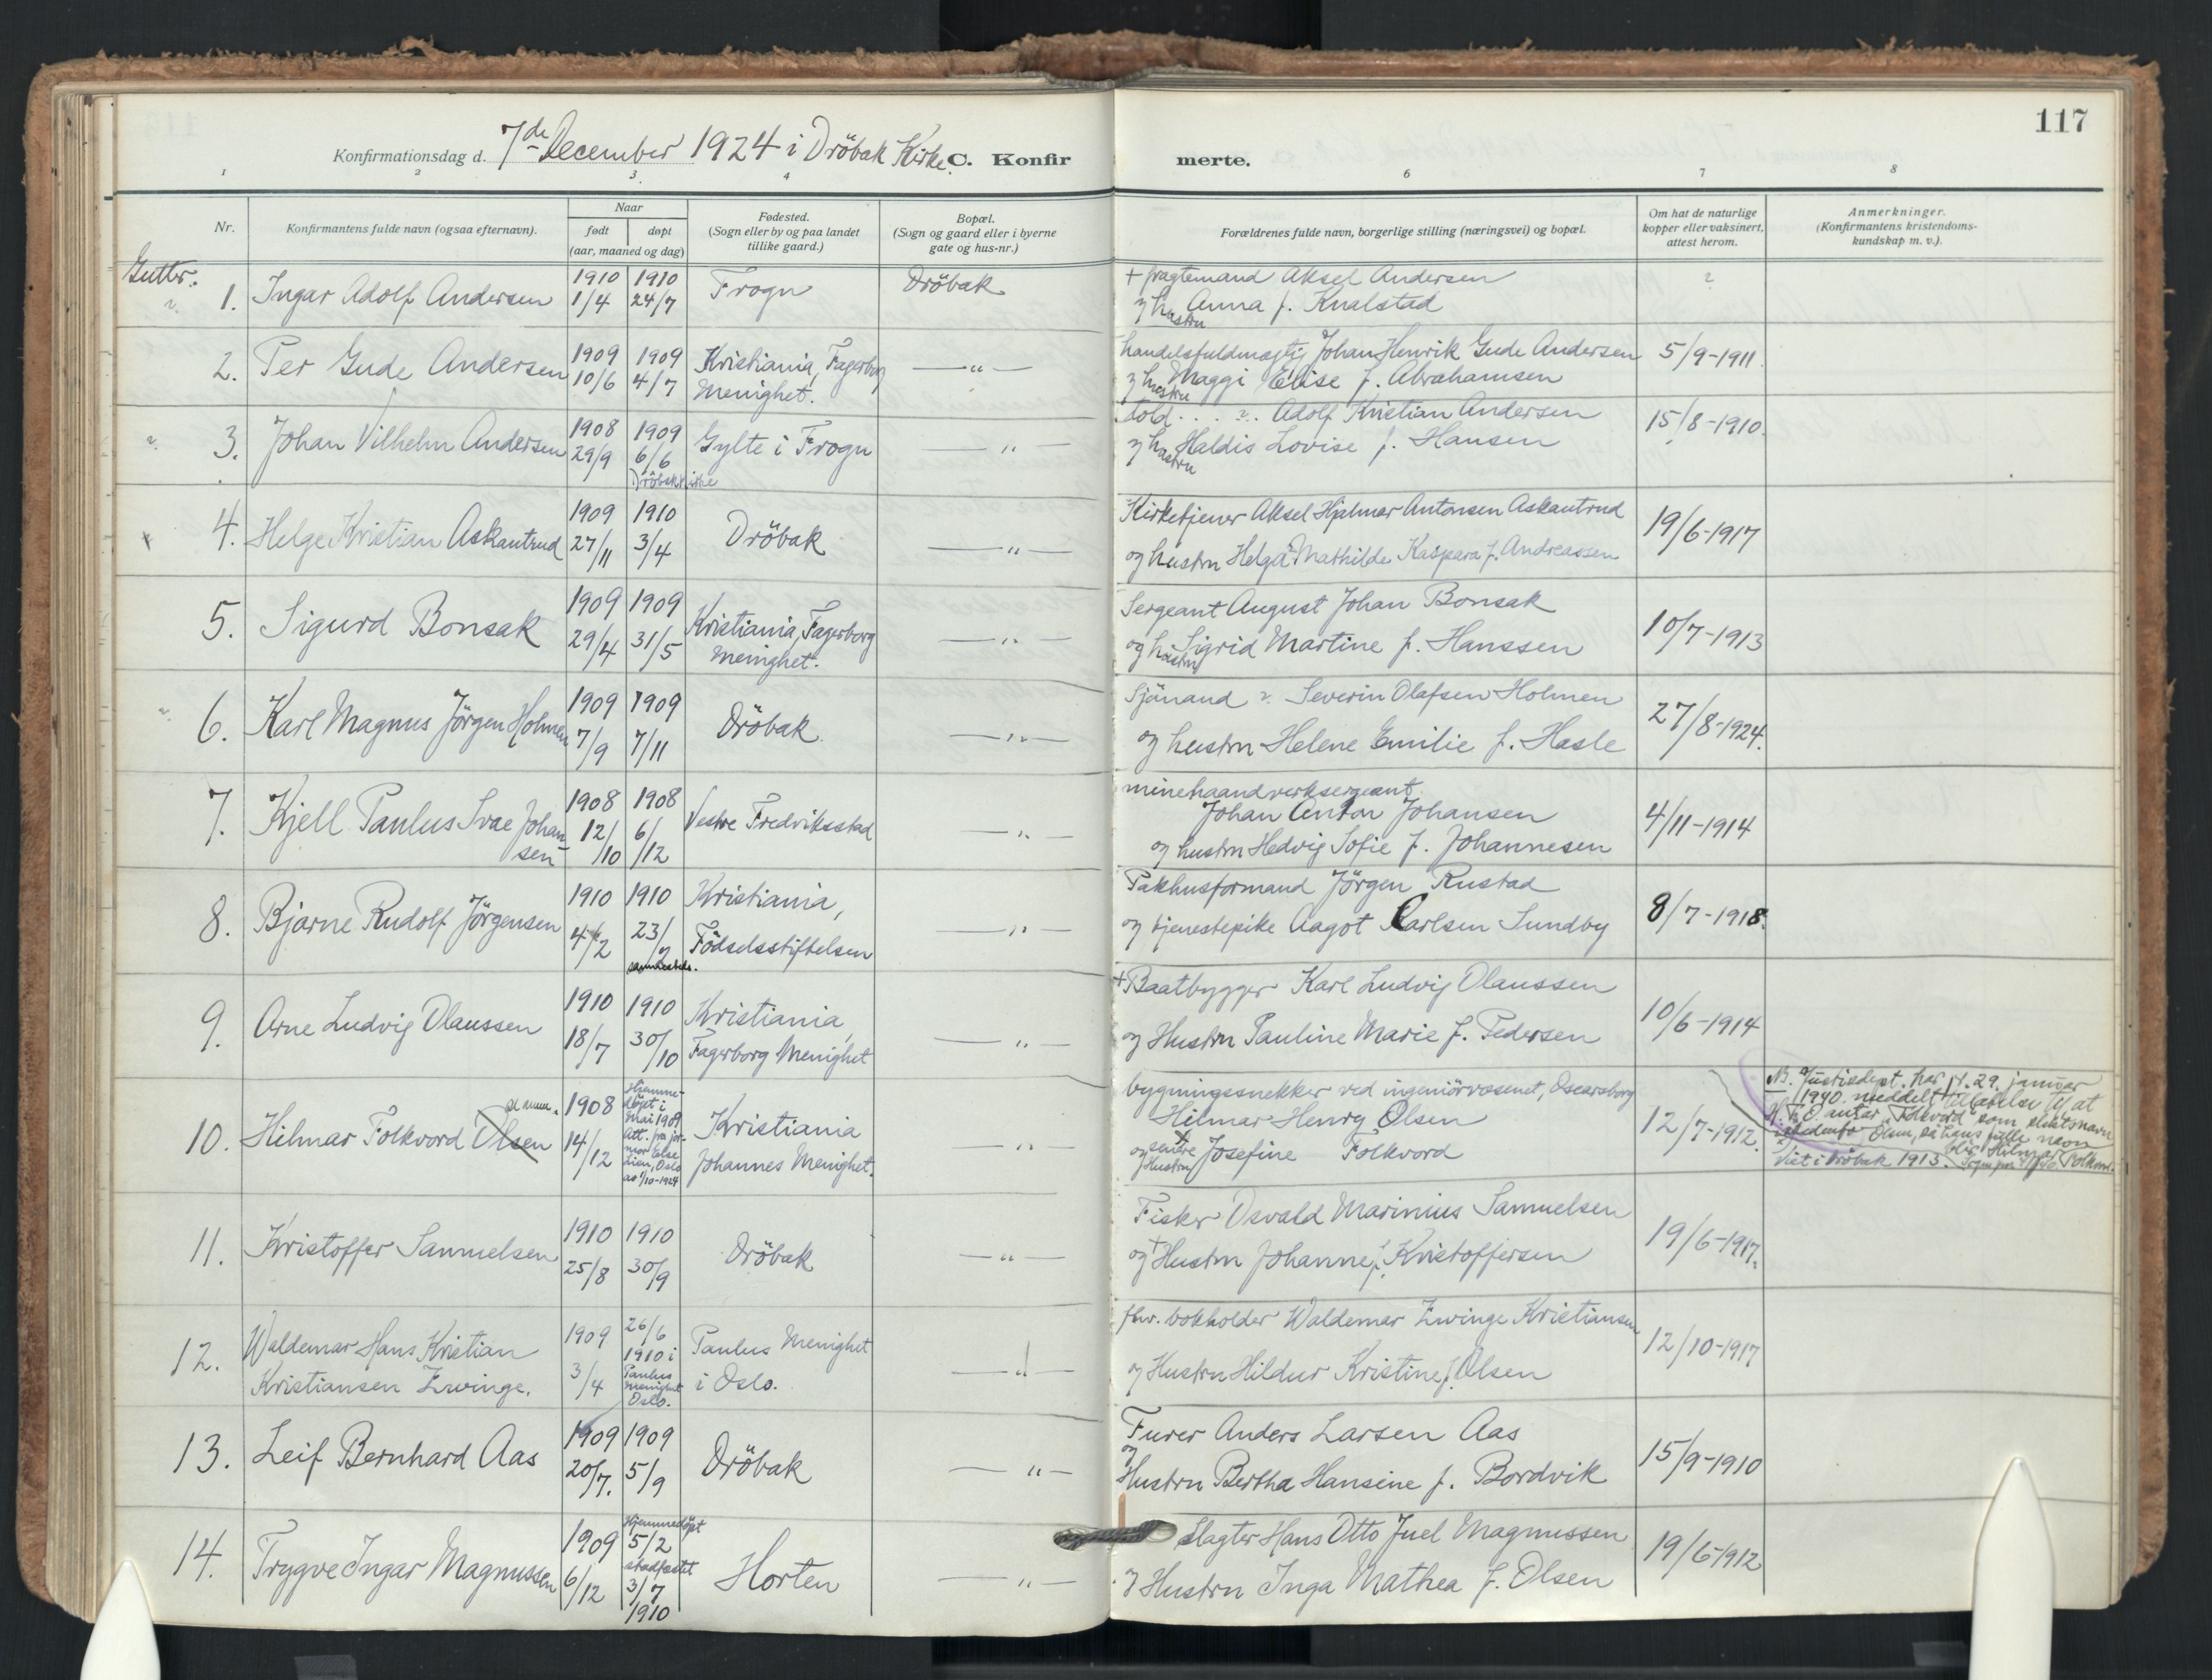 117
Konfirmationsdag d. 7de December 1924 i Dröbak Kirke. C. Konfir merte.
1 2 3. 4 6 7 8
Nr.
Konfirmantens fulde navn (ogsaa efternavn).
Naar
født døpt
(aar, maaned og dag)
Fødested.
(Sogn eller by og paa landet
tillike gaard.)
Bopæl.
(Sogn og gaard eller i byerne
gate og hus-nr.)
Forældrenes fulde navn, borgerlige stilling (næringsvei) og bopæl.
Om hat de naturlige
kopper eller vaksinert,
attest herom.
Anmerkninger.
(Konfirmantens kristendoms-
kundskap m. v.).
Gutter.
1. Ingar Adolf Andersen
1910 1/4
1910 24/7
Frogn
Dröbak
+ fragtemand Aksel Andersen
og hustru Anna f. Knalstad
?
2. Per Gude Andersen
1909 10/6
1909 4/7
Kristiania, Fagerborg
Menighet.
— " —
handelsfuldmægtig Johan Henrik Gude Andersen
og hustru Maggi Elise f. Abrahamsen
5/9-1911
3. Johan Vilhelm Andersen
1908 29/9
1909 6/6
Dröbak kirke
Gylte i Frogn
— " —
told . . . ? . Adolf Kristian Andersen
og hustru Haldis Lovise f. Hansen
15/8-1910.
4. Helge Kristian Askautrud
1909 27/11
1910 3/4
Dröbak
— " —
Kirketjener Aksel Hjalmar Antonsen Askautrud
og hustru Helga Mathilde Kaspara f. Andreassen
19/6-1917
5. Sigurd Bonsak
1909 29/4
1909 31/5
Kristiania, Fagerborg
Menighet.
— " —
Sergeant August Johan Bonsak
og hustru Sigrid Martine f. Hanssen
10/7-1913
6. Karl Magnus Jörgen Holmen
1909 7/9
1909 7/11
Dröbak
— " —
Sjömand ? Severin Olafsen Holmen
og hustru Helene Emilie f. Hasle
27/8-1924.
7. Kjell Paulus Svae Johan-
sen
1908 12/10
1908 6/12
Vestre Fredriksstad
— " —
minehaandverksergeant
Johan Anton Johansen
og hustru Hedvig Sofie f. Johannesen
4/11-1914
8. Bjarne Rudolf Jörgensen
1910 4/2
1910 23/2
sammesteds.
Kristiania,
Födselsstiftelsen
— " —
Pakhusformand Jörgen Rustad
og tjenestepike Aagot Karlsen Sundby
8/7-1918.
9. Arne Ludvig Olaussen
1910 18/7
1910 30/10
Kristiania,
Fagerborg Menighet
— " —
+ Baatbygger Karl Ludvig Olaussen
og Hustru Pauline Marie f. Pedersen
10/6-1914
10. Hilmar Folkvord Olsen
se anm.
1908 14/12
Hjemme-
döpt i
Mai 1909
Att. fra jor-
mor Else
Lien, Oslo
av 1/10-1924
Kristiania
Johannes Menighet.
— " —
bygningssnekker ved ingeniörvæsenet, Oscarsborg
Hilmar Henry Olsen
og senere Hustru Josefine Folkvord
12/7-1912.
NB. Justisdept. har d. 29. januar
1940. meddelt tillatelse til at
H. F. O antar "Folkvord" som slektsnavn
istedenfor Olsen, så hans fulle navn
blir Hilmar Folkvord.
Viet i Dröbak 1913.
11. Kristoffer Samuelsen
1910 25/8
1910 30/9
Dröbak
— " —
Fisker Osvald Marinius Samuelsen
og + Hustru Johanne f. Kristoffersen
19/6-1917.
12. Waldemar Hans Kristian
Kristiansen Zwinge.
1909 3/4
26/6
1910 i
Paulus
menighet
Oslo.
Paulus Menighet
i Oslo.
— " —
fhv. bokholder Waldemar Zwinge Kristiansen
og Hustru Hildur Kristine f. Olsen
12/10-1917
13. Leif Bernhard Aas
1909 20/7.
1909 5/9
Dröbak
— " —
Furer Anders Larsen Aas
og
Hustru Bertha Hansine f. Bordvik
15/9-1910
14. Trygve Ingar Magnussen
1909 6/12
Hjemmedöpt
5/2
stadfæstet
3/7
1910
Horten
— " —
Slagter Hans Otto Juel Magnussen
og Hustru Inga Mathea f. Olsen
19/6-1912